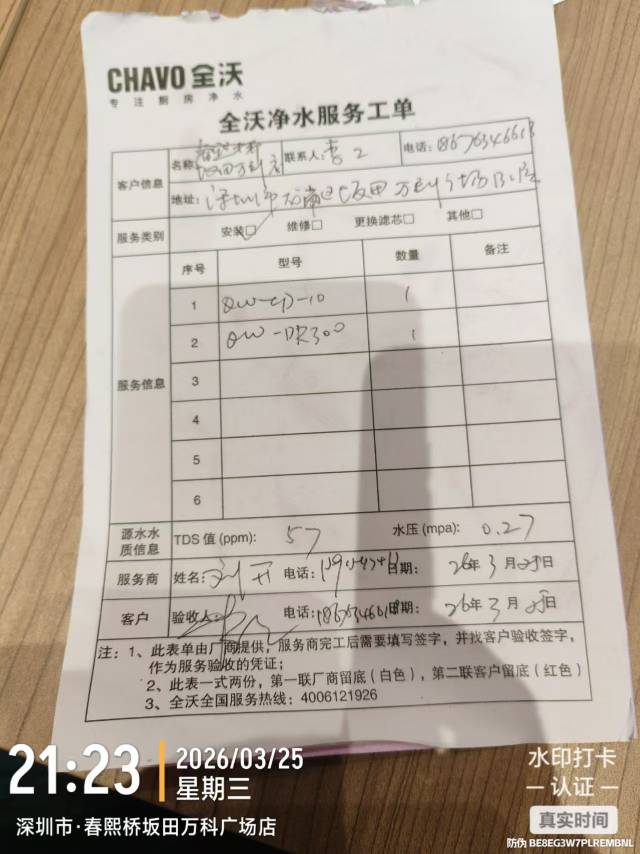 CHAVO 全沃
专注厨房净水
全沃净水服务工单
客户信息
名称: 坂田万科店 联系人: 李工 电话: 18676346613
地址: 深圳市龙岗区坂田万科广场
服务类别 安装☑ 维修□ 更换滤芯□ 其他□
服务信息 序号 型号 数量 备注
1 QW-CD-10 1
2 QW-DR300 1
3
4
5
6
源水水质信息 TDS 值 (ppm): 57 水压 (mpa): 0.27
服务商 姓名: 刘开 电话: 日期: 26年 3月 25日
客户 验收人: 电话: 日期: 26年 3月 25日
注: 1、此表单由厂商提供，服务商完工后需要填写签字，并找客户验收签字，
作为服务验收的凭证；
2、此表一式两份，第一联厂商留底（白色），第二联客户留底（红色）
3、全沃全国服务热线: 4006121926
21:23 2026/03/25
星期三
深圳市·春熙桥坂田万科广场店
水印打卡
认证
真实时间
防伪 BE8EG3W7PLREMBNL